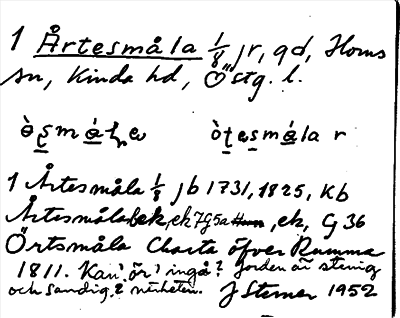 1 Årtesmåla 1/8 jr, qd, Horns
sn, Kinda hd, Östg. l.
òtesmála r
1 Årtesmåla 1/8 jb 1731, 1825, Kb
Årtesmåla bek, ek 7G5a, ek, G 36
Örtsmåla Charta öfver Ramma
1811. Kan 'ör' ingå? Jorden är stenig
och sandig i närheten. J Sterner 1952